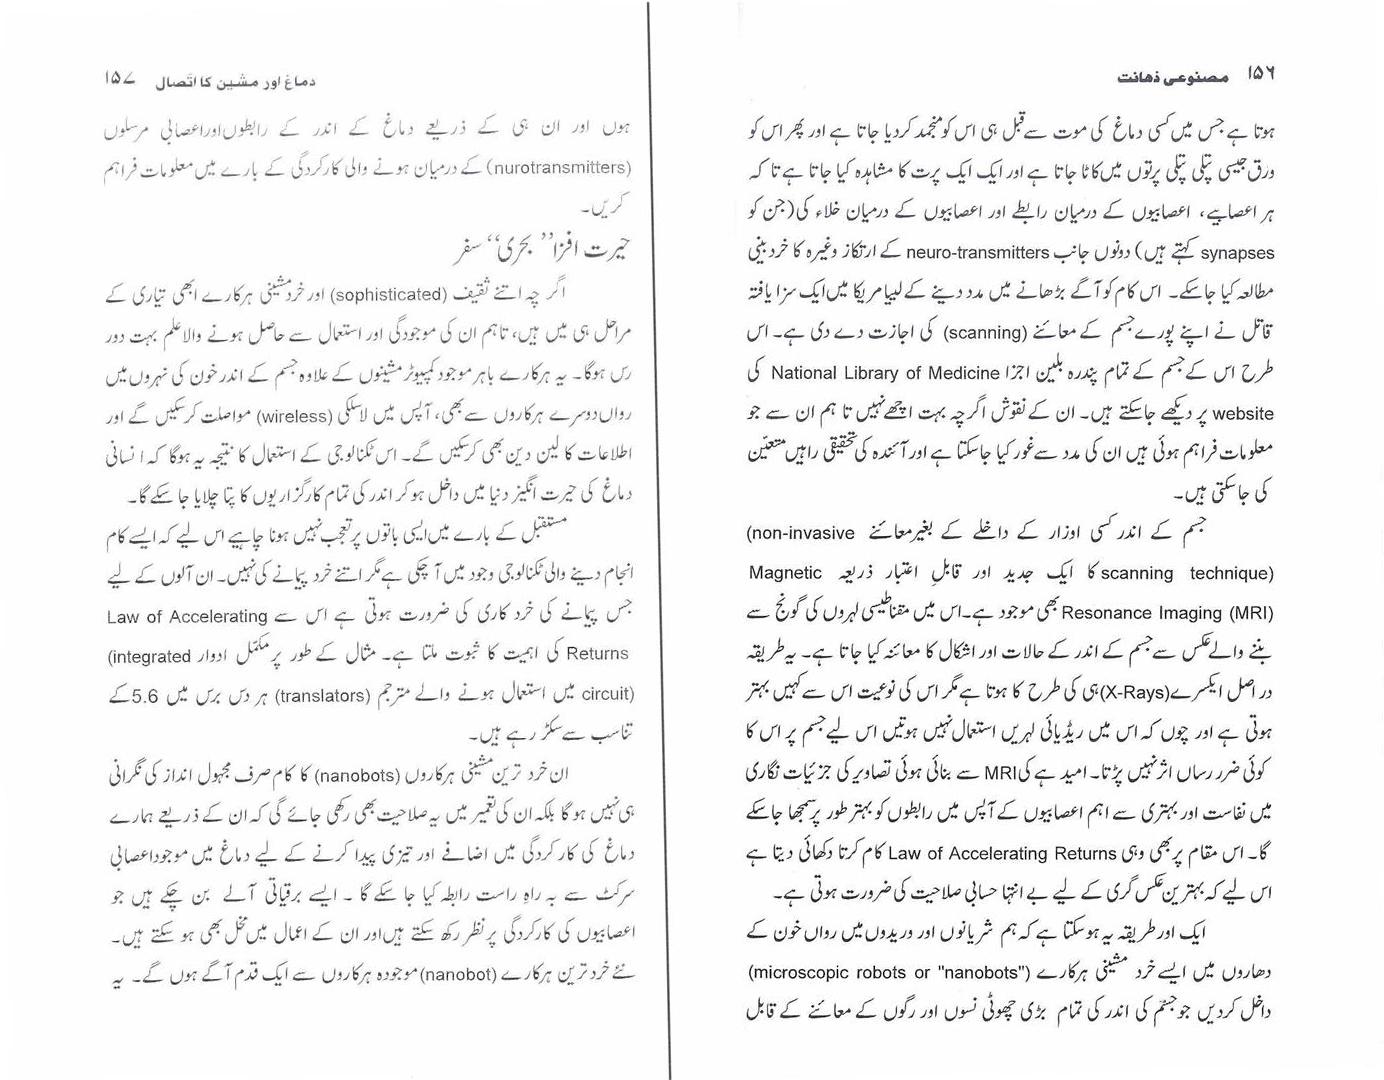 ۱۵۶ مصنوعی ذہانت
ہوتا ہے جس میں کسی دماغ کی موت سے قبل ہی اس کو منجمد کردیا جاتا ہے اور پھر اس کو
ورق جیسی پتلی پتلی پرتوں میں کاٹا جاتا ہے اور ایک ایک پرت کا مشاہدہ کیا جاتا ہے تا کہ
ہر اعصابیے، اعصابیوں کے درمیان رابطے اور اعصابیوں کے درمیان خلاء کی (جن کو
synapses کہتے ہیں) دونوں جانب neuro-transmitters کے ارتکاز وغیرہ کا خرد بینی
مطالعہ کیا جاسکے۔ اس کام کو آگے بڑھانے میں مدد دینے کے لیے امریکا میں ایک سزا یافتہ
قاتل نے اپنے پورے جسم کے معائنے (scanning) کی اجازت دے دی ہے۔ اس
طرح اس کے جسم کے تمام پندرہ بلین اجزا National Library of Medicine کی
website پر دیکھے جاسکتے ہیں۔ ان کے نقوش اگرچہ بہت اچھے نہیں تا ہم ان سے جو
معلومات فراہم ہوئی ہیں ان کی مدد سے غور کیا جاسکتا ہے اور آئندہ کی تحقیقی راہیں متعیّن
کی جاسکتی ہیں۔
جسم کے اندر کسی اوزار کے داخلے کے بغیر معائنے (non-invasive
scanning technique) کا ایک جدید اور قابلِ اعتبار ذریعہ Magnetic
Resonance Imaging (MRI) بھی موجود ہے۔ اس میں مقناطیسی لہروں کی گونج سے
بننے والے عکس سے جسم کے اندر کے حالات اور اشکال کا معائنہ کیا جاتا ہے۔ یہ طریقہ
در اصل ایکسرے (X-Rays) ہی کی طرح کا ہوتا ہے مگر اس کی نوعیت اس سے کہیں بہتر
ہوتی ہے اور چوں کہ اس میں ریڈیائی لہریں استعمال نہیں ہوتیں اس لیے جسم پر اس کا
کوئی ضرر رساں اثر نہیں پڑتا۔ امید ہے کی MRI سے بنائی ہوئی تصاویر کی جزئیات نگاری
میں نفاست اور بہتری سے اہم اعصابیوں کے آپس میں رابطوں کو بہتر طور پر سمجھا جاسکے
گا۔ اس مقام پر بھی وہی Law of Accelerating Returns کام کرتا دکھائی دیتا ہے
اس لیے کہ بہترین عکس گری کے لیے بے انتہا حسابی صلاحیت کی ضرورت ہوتی ہے۔
ایک اور طریقہ یہ ہوسکتا ہے کہ ہم شریانوں اور وریدوں میں رواں خون کے
دھاروں میں ایسے خرد مشینی ہرکارے (microscopic robots or "nanobots")
داخل کردیں جو جسّم کی اندر کی تمام بڑی چھوٹی نسوں اور رگوں کے معائنے کے قابل
دماغ اور مشین کا اتّصال ۱۵۷
ہوں اور ان ہی کے ذریعے دماغ کے اندر کے رابطوں اور اعصابی مرسلوں
(nurotransmitters) کے درمیان ہونے والی کارکردگی کے بارے میں معلومات فراہم
کریں۔
حیرت افزا ”بحری“ سفر
اگر چہ اتنے ثقیف (sophisticated) اور خرد مشینی ہرکارے ابھی تیاری کے
مراحل ہی میں ہیں، تاہم ان کی موجودگی اور استعمال سے حاصل ہونے والا علم بہت دور
رس ہوگا۔ یہ ہرکارے باہر موجود کمپیوٹر مشینوں کے علاوہ جسم کے اندر خون کی نہروں میں
رواں دوسرے ہرکاروں سے بھی، آپس میں لاسلکی (wireless) مواصلت کرسکیں گے اور
اطلاعات کا لین دین بھی کرسکیں گے۔ اس ٹکنالوجی کے استعمال کا نتیجہ یہ ہوگا کہ انسانی
دماغ کی حیرت انگیز دنیا میں داخل ہو کر اندر کی تمام کارگزاریوں کا پتا چلایا جا سکے گا۔
مستقبل کے بارے میں ایسی باتوں پر تعجب نہیں ہونا چاہیے اس لیے کہ ایسے کام
انجام دینے والی ٹکنالوجی وجود میں آ چکی ہے مگر اتنے خرد پیمانے کی نہیں۔ ان آلوں کے لیے
جس پیمانے کی خرد کاری کی ضرورت ہوتی ہے اس سے Law of Accelerating
Returns کی اہمیت کا ثبوت ملتا ہے۔ مثال کے طور پر مکمّل ادوار (integrated
circuit) میں استعمال ہونے والے مترجم (translators) ہر دس برس میں 5.6 کے
تناسب سے سکڑ رہے ہیں۔
ان خرد ترین مشینی ہرکاروں (nanobots) کا کام صرف مجہول انداز کی نگرانی
ہی نہیں ہو گا بلکہ ان کی تعمیر میں یہ صلاحیت بھی رکھی جائے گی کہ ان کے ذریعے ہمارے
دماغ کی کارکردگی میں اضافے اور تیزی پیدا کرنے کے لیے دماغ میں موجود اعصابی
سرکٹ سے بہ راہِ راست رابطہ کیا جا سکے گا ۔ ایسے برقیاتی آلے بن چکے ہیں جو
اعصابیوں کی کارکردگی پر نظر رکھ سکتے ہیں اور ان کے اعمال میں مخل بھی ہو سکتے ہیں۔
نئے خرد ترین ہرکارے (nanobot) موجودہ ہرکاروں سے ایک قدم آگے ہوں گے۔ یہ